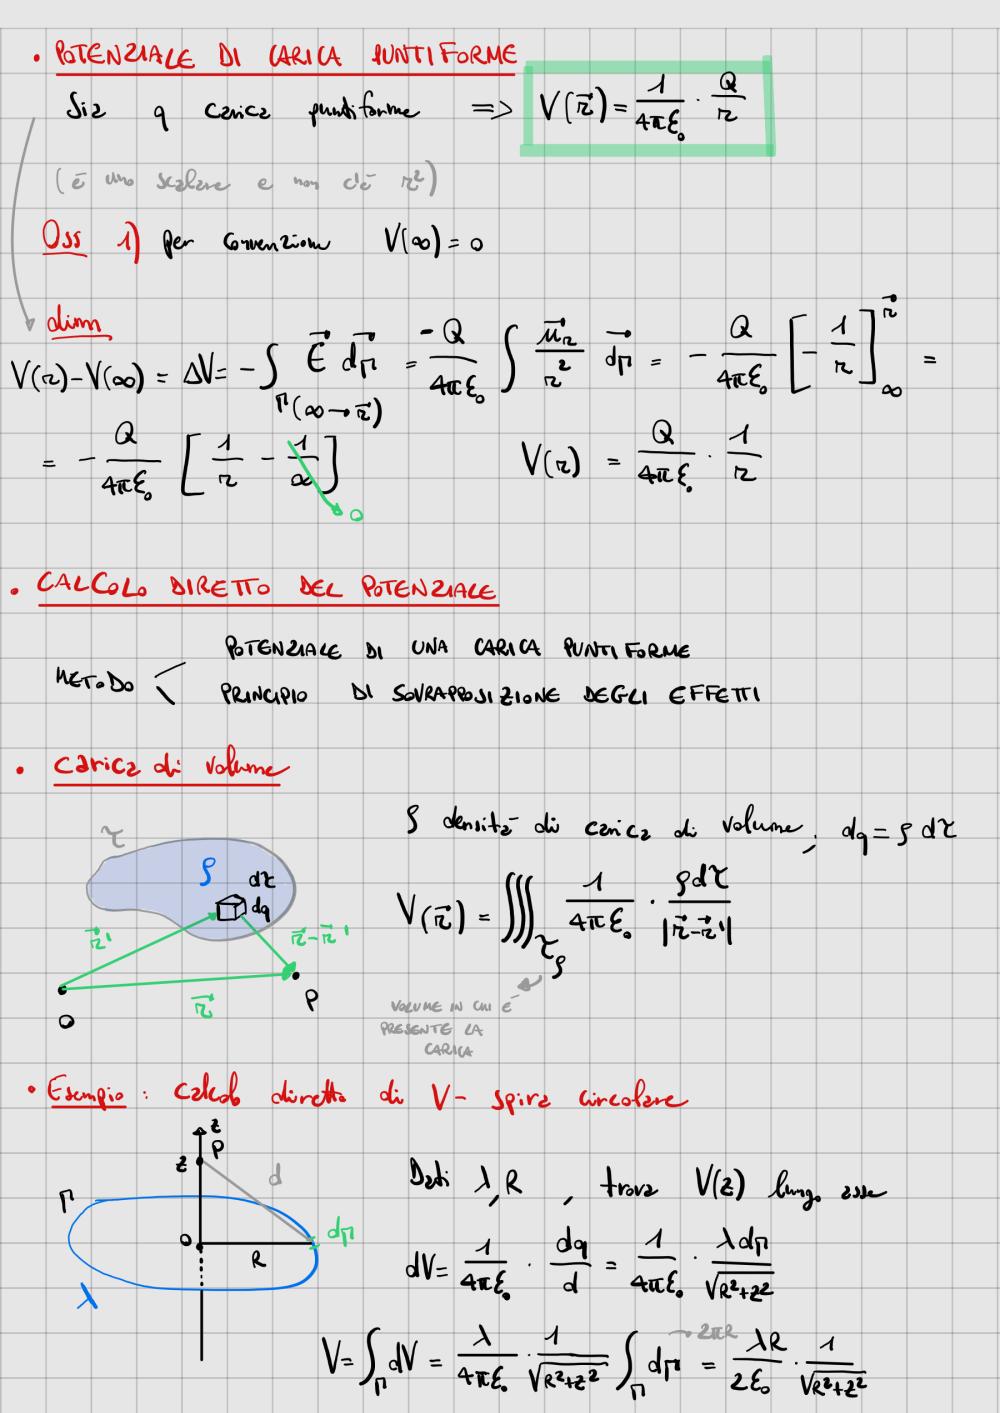 • POTENZIALE DI CARICA PUNTIFORME
Sia q carica puntiforme => V(r⃗) = 1/(4πε₀) · Q/r
(è uno scalare e non c'è r²)
Oss 1) per convenzione V(∞) = 0
dim
V(r) - V(∞) = ΔV = - ∫_Γ(∞→r⃗) E⃗ dΓ⃗ = -Q/(4πε₀) ∫ u⃗r/r² dΓ⃗ = - Q/(4πε₀) [- 1/r]_∞^r⃗ =
= - Q/(4πε₀) [1/r - 1/∞] → 0 V(r) = Q/(4πε₀) · 1/r
• CALCOLO DIRETTO DEL POTENZIALE
METODO < POTENZIALE DI UNA CARICA PUNTIFORME
PRINCIPIO DI SOVRAPPOSIZIONE DEGLI EFFETTI
• carica di volume
τ
ρ dτ
dq
r⃗' r⃗-r⃗'
r⃗ P
O
ρ densità di carica di volume, dq = ρ dτ
V(r⃗) = ∭_τρ 1/(4πε₀) · ρdτ/|r⃗-r⃗'|
VOLUME IN CUI È
PRESENTE LA
CARICA
• Esempio: calcolo diretto di V - spira circolare
z
P
z d
Γ
O R dΓ
λ
Dati λ, R, trova V(z) lungo asse
dV = 1/(4πε₀) · dq/d = 1/(4πε₀) · λdΓ/√(R²+z²)
V = ∫_Γ dV = λ/(4πε₀) · 1/√(R²+z²) ∫_Γ dΓ → 2πR = λR/(2ε₀) · 1/√(R²+z²)